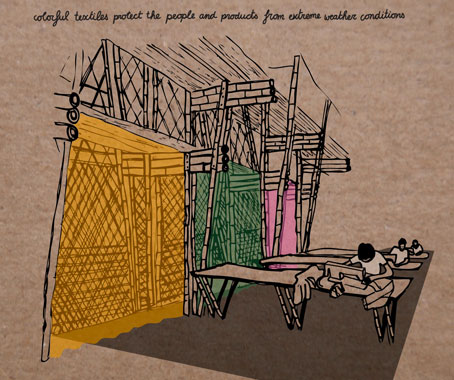 colorful textiles protect the people and products from extreme weather conditions